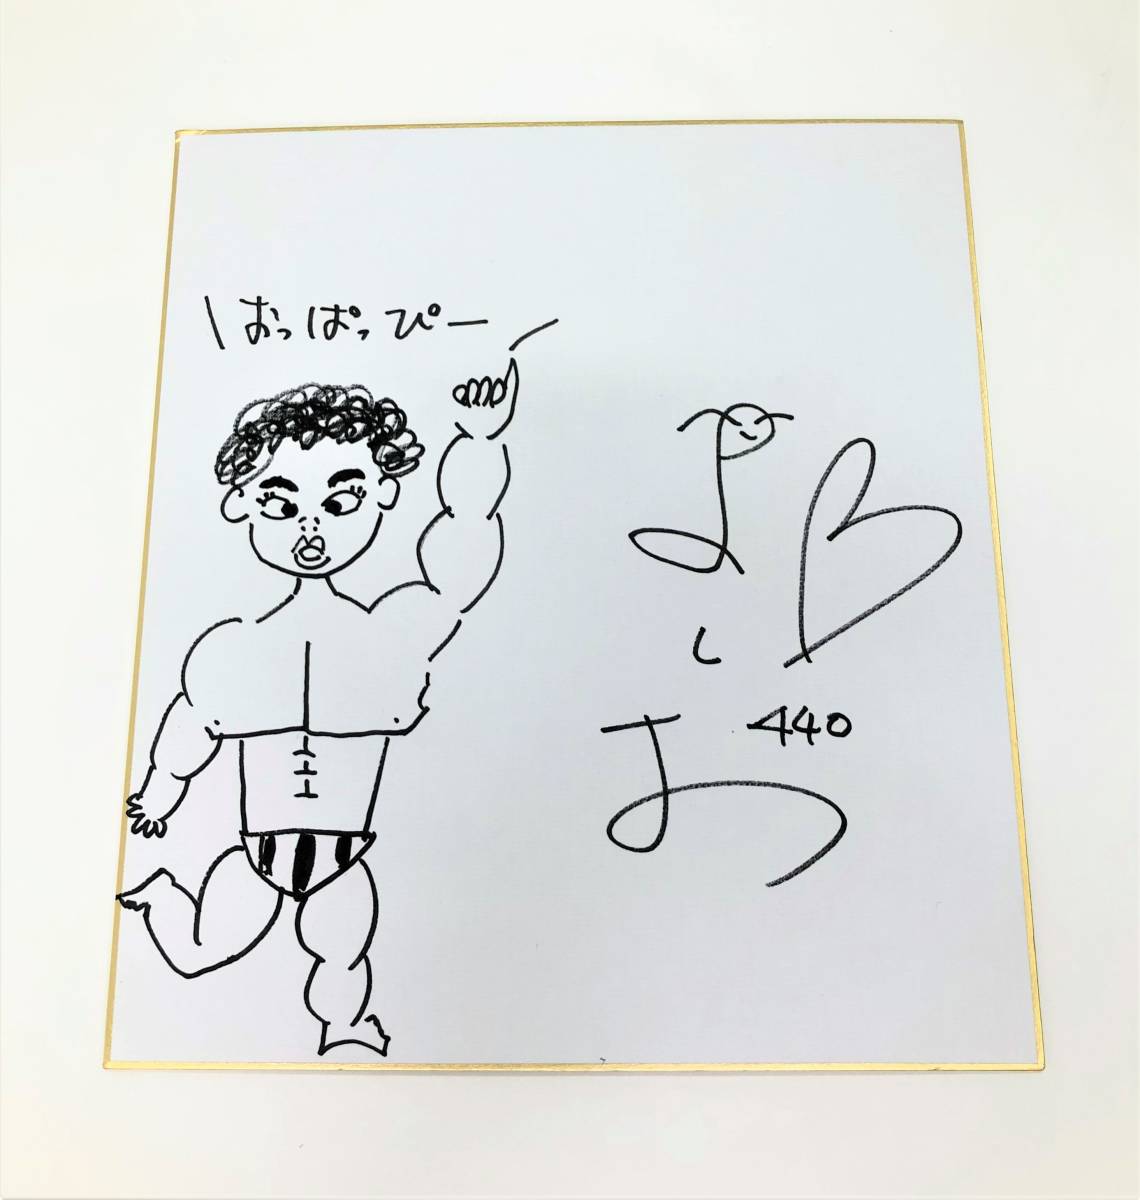 \おっぱっぴー/
よ
し
お
440